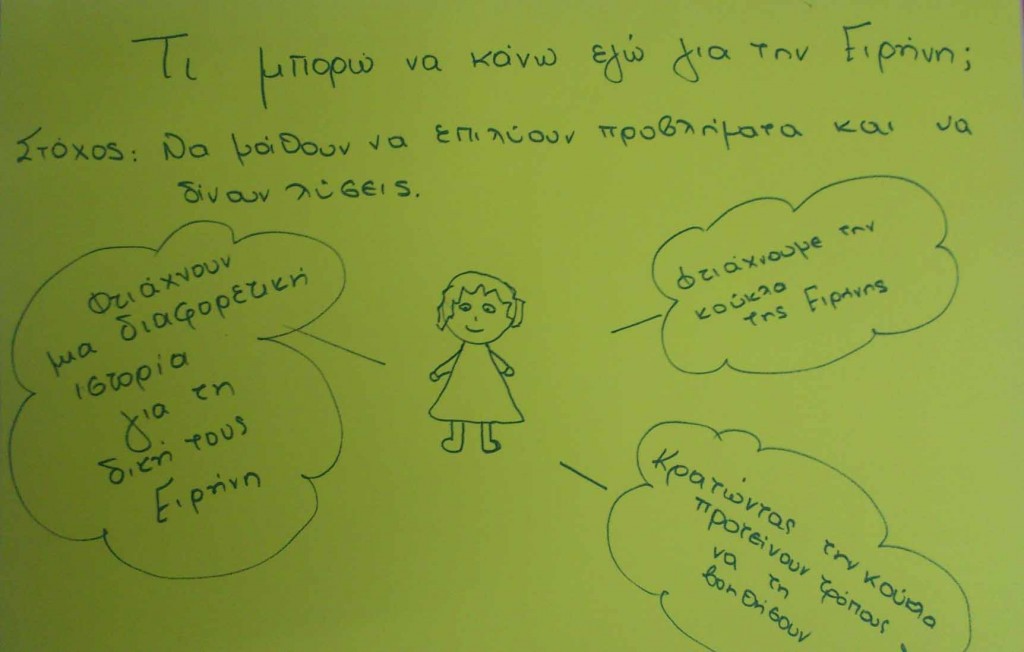 Τι μπορώ να κάνω εγώ για την Ειρήνη;
Στόχος: Να μάθουν να επιλύουν προβλήματα και να
δίνουν λύσεις.
Φτιάχνουν
μια διαφορετική
ιστορία
για τη
δική τους
Ειρήνη
Φτιάχνουμε την
κούκλα
της Ειρήνης
Κρατώντας την κούκλα
προτείνουν τρόπους
να τη
βοηθήσουν